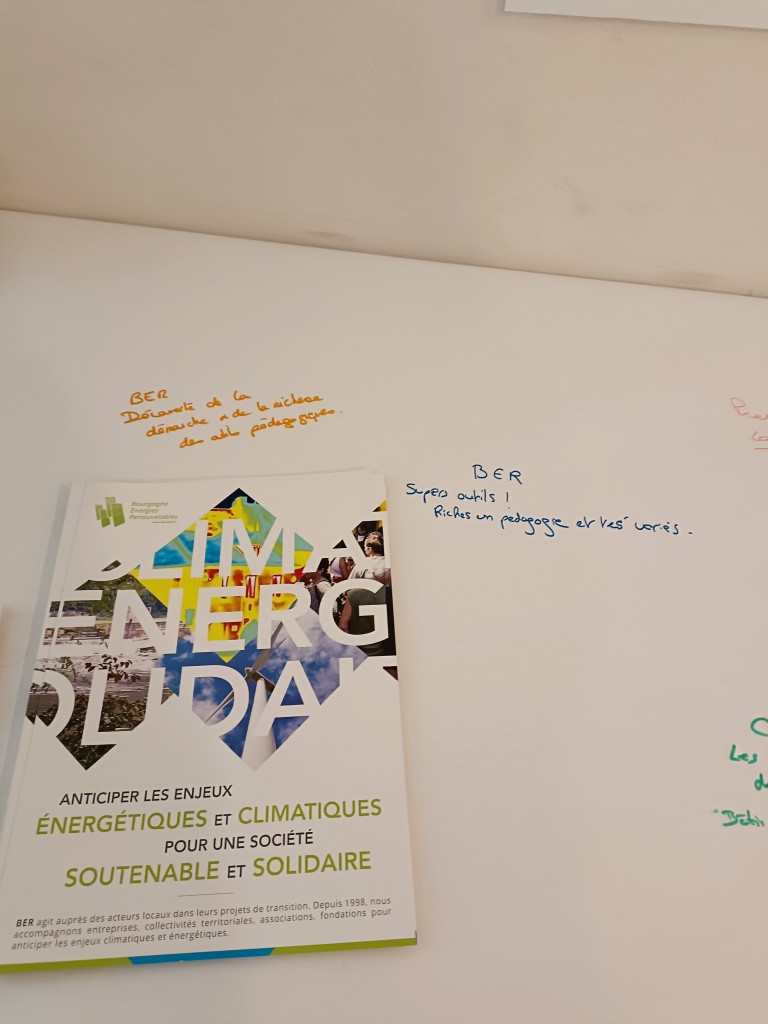 BER
Découverte de la
démarche & de la richesse
des outils pédagogiques.
BER
Supers outils !
Riches en pédagogie et très variés.
Les
Bâtir
Bourgogne
Énergies
Renouvelables
CLIMA
ENERG
OLIDAI
ANTICIPER LES ENJEUX
ÉNERGÉTIQUES ET CLIMATIQUES
POUR UNE SOCIÉTÉ
SOUTENABLE ET SOLIDAIRE
BER agit auprès des acteurs locaux dans leurs projets de transition. Depuis 1998, nous
accompagnons entreprises, collectivités territoriales, associations, fondations pour
anticiper les enjeux climatiques et énergétiques.